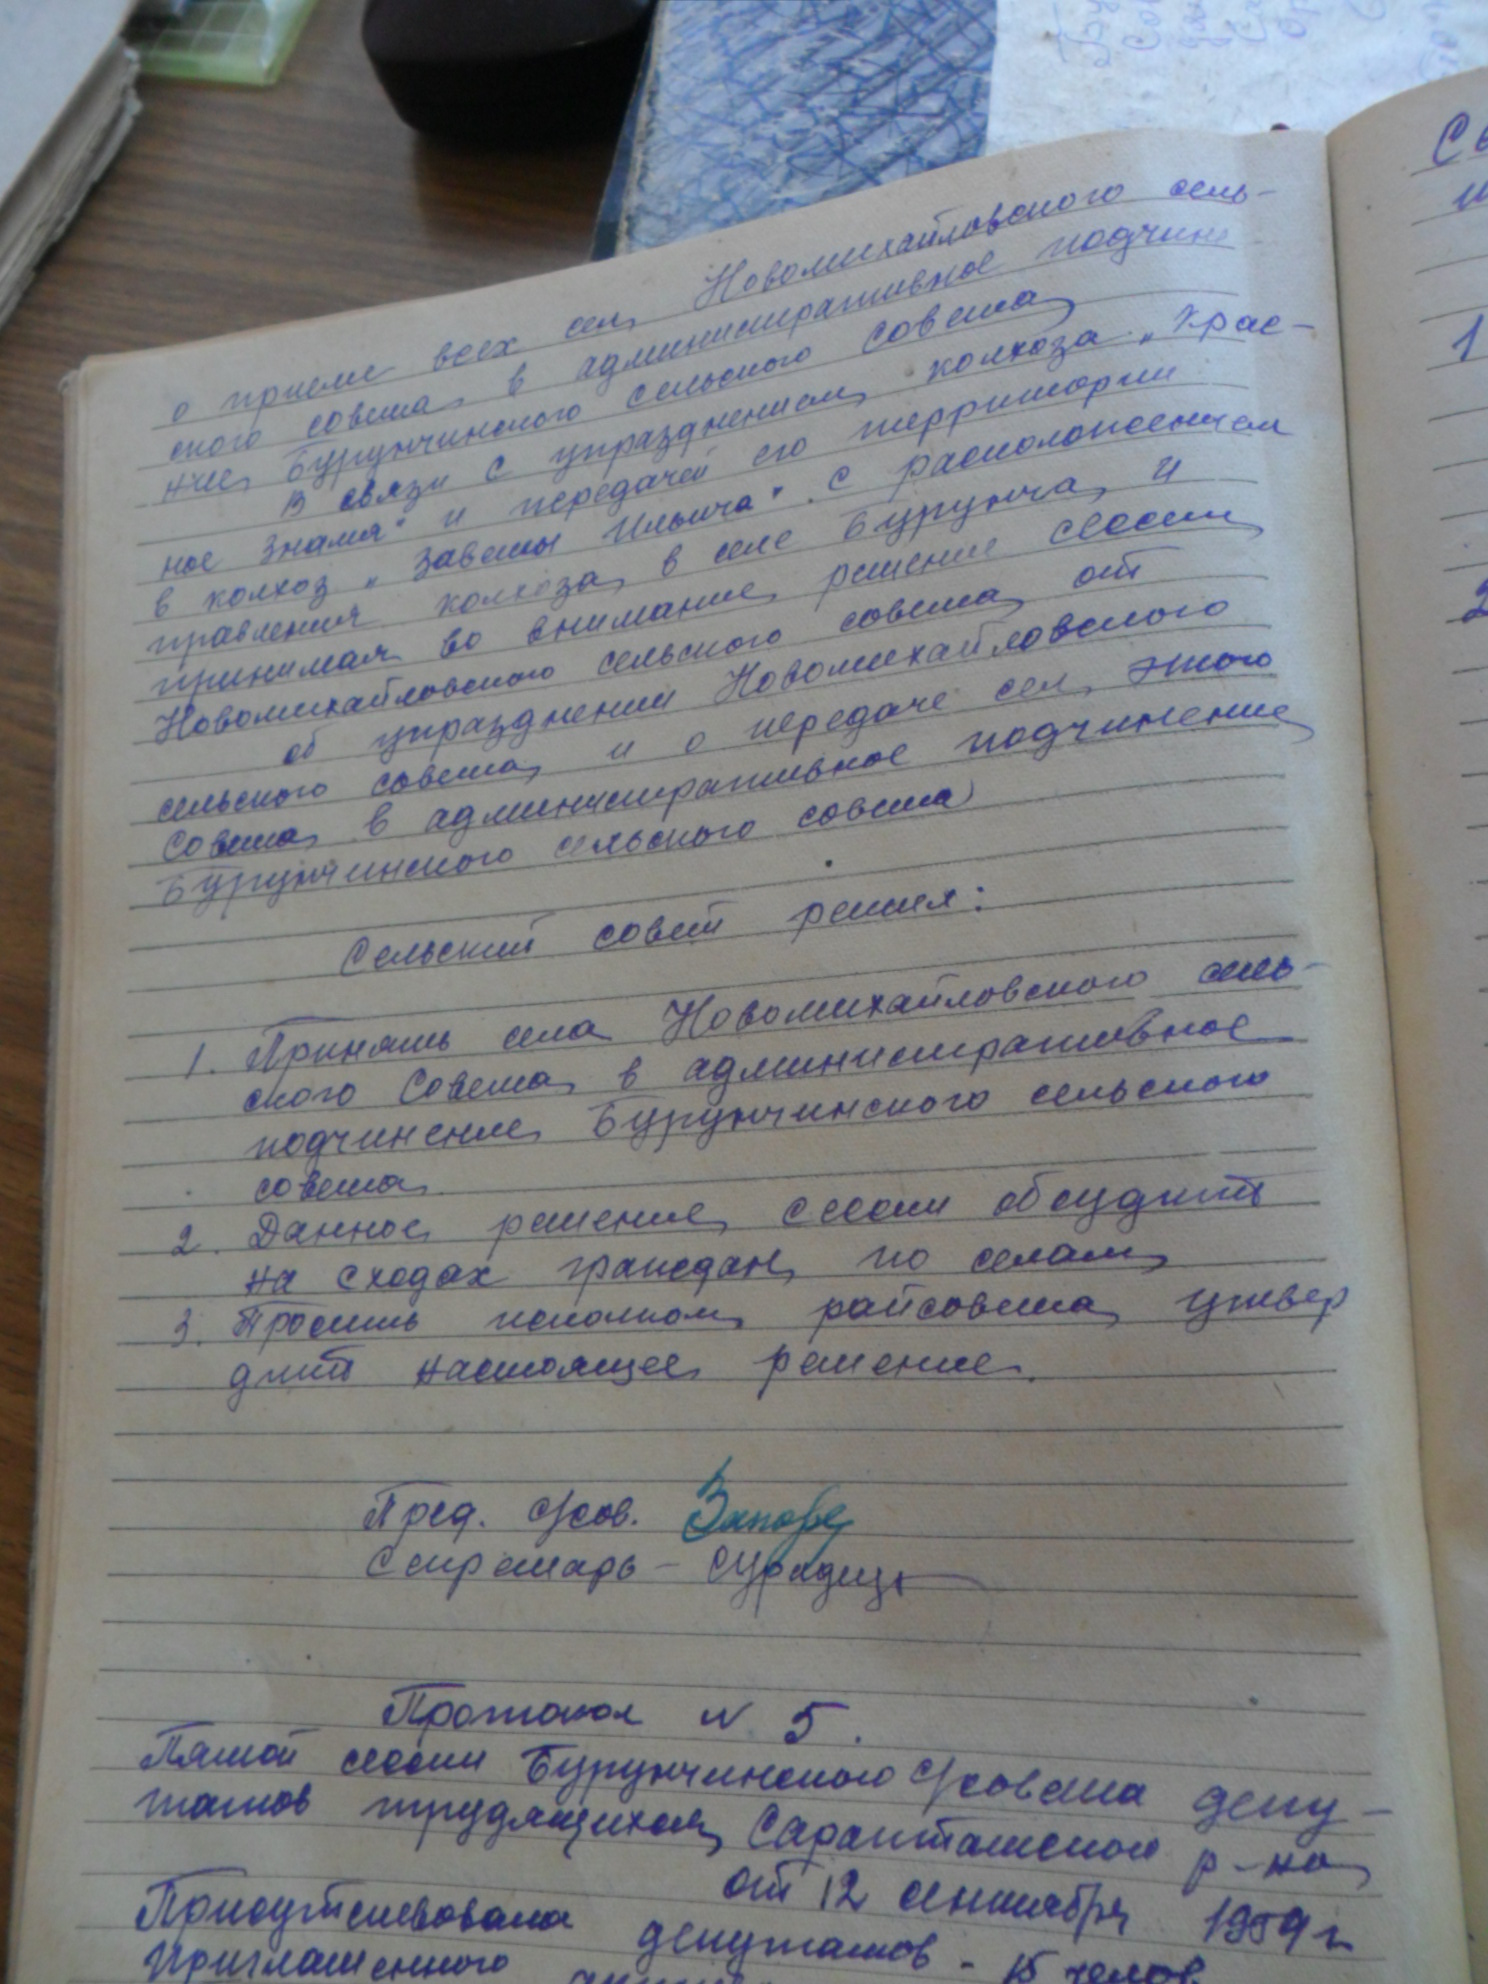 о приеме всех сел Новомихайловского сель-
ского совета в административное подчине
ние Бурунчинского сельского совета
В связи с упразднением колхоза „Крас-
ное знамя" и передачей его территории
в колхоз „Заветы Ильича" с расположением
правления колхоза в селе Бурунча и
принимая во внимание решение сессии
Новомихайловского сельского совета от
об упразднении Новомихайловского
сельского совета и о передаче сел этого
Совета в административное подчинение
Бурунчинского сельского совета
Сельский совет решил:
1. Принять села Новомихайловского сель-
ского Совета в административное
подчинение Бурунчинского сельского
совета.
2. Данное решение сессии обсудить
на сходах граждан по селам
3. Просить исполком райсовета утвер
дить настоящее решение.
Пред. с/сов.
Секретарь –
Протокол N 5.
Пятой сессии Бурунчинского с/совета депу-
татов трудящихся Саракташского р-на
от 12 сентября 1959 г
Присутствовала депутатов - 15 челов.
Приглашенного